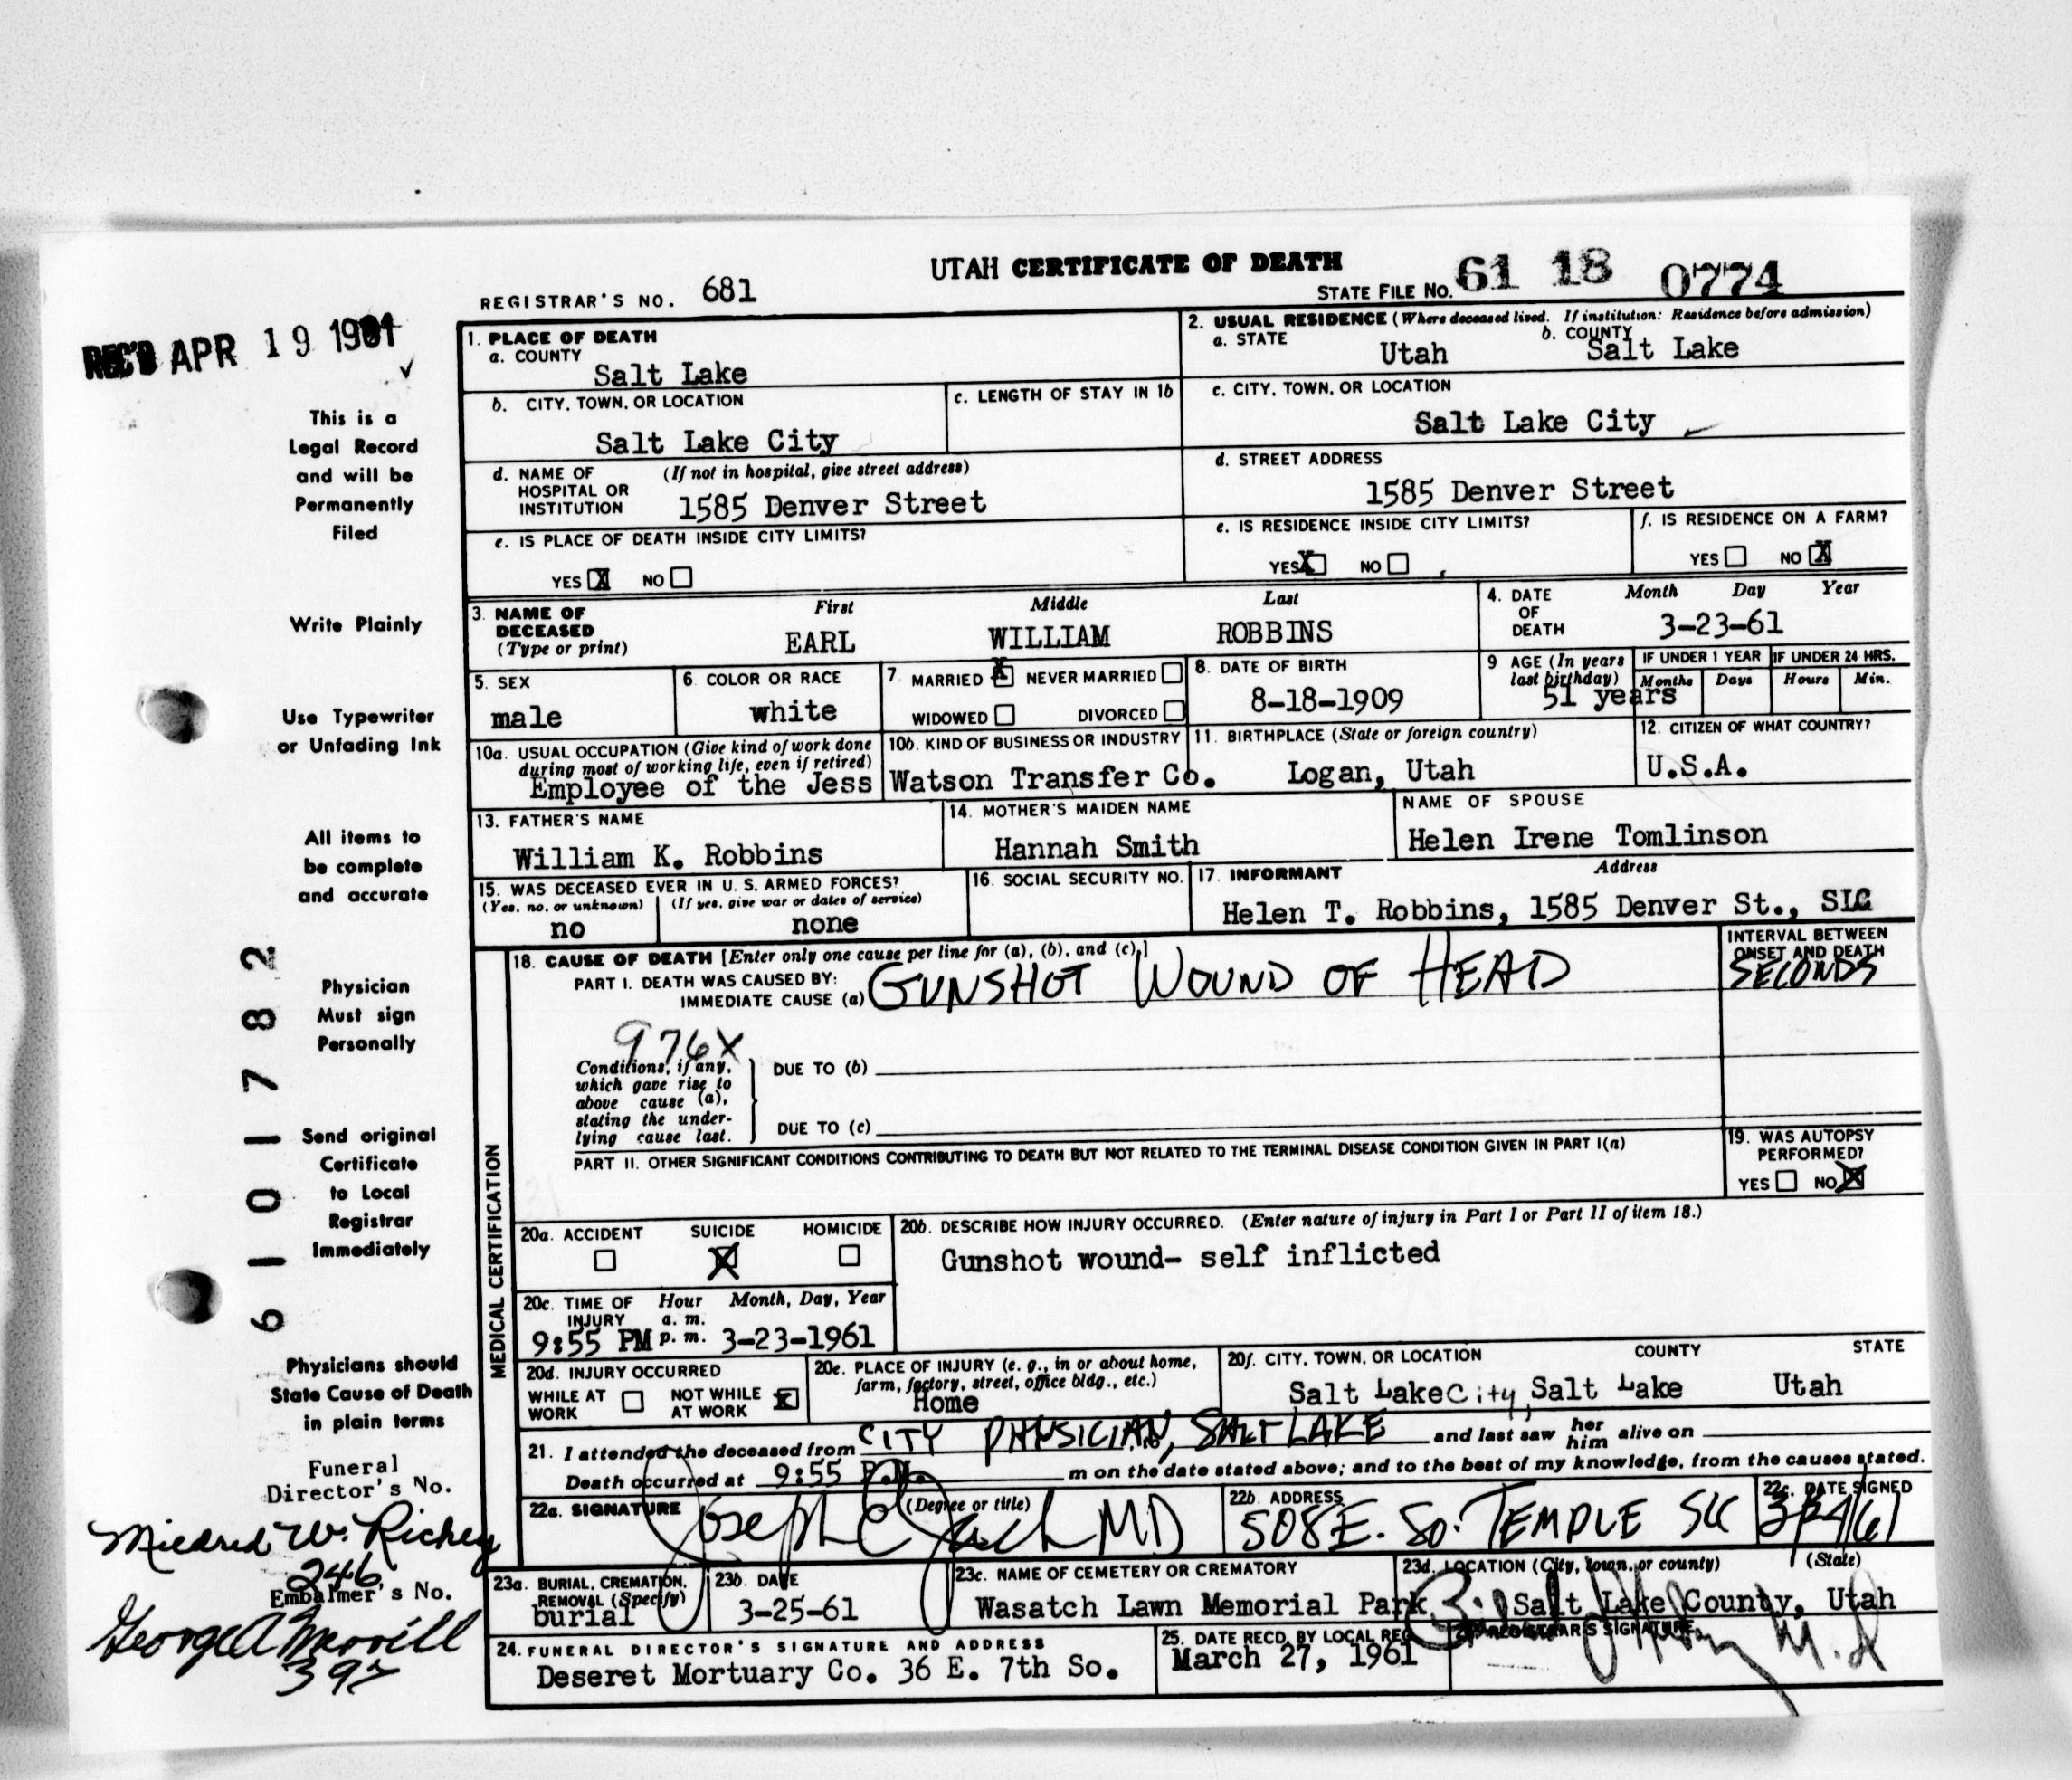 UTAH CERTIFICATE OF DEATH
REGISTRAR'S NO. 681
STATE FILE NO. 61 18 0774
REC'D APR 19 1961
This is a
Legal Record
and will be
Permanently
Filed
Write Plainly
Use Typewriter
or Unfading Ink
All items to
be complete
and accurate
Physician
Must sign
Personally
Send original
Certificate
to Local
Registrar
Immediately
Physicians should
State Cause of Death
in plain terms
Funeral
Director's No.
Mildred W. Richey
246
Embalmer's No.
George A Merrill
397
61 01782
1. PLACE OF DEATH
a. COUNTY
Salt Lake
b. CITY, TOWN, OR LOCATION
Salt Lake City
c. LENGTH OF STAY IN 1b
d. NAME OF HOSPITAL OR INSTITUTION (If not in hospital, give street address)
1585 Denver Street
e. IS PLACE OF DEATH INSIDE CITY LIMITS?
YES X NO
2. USUAL RESIDENCE (Where deceased lived. If institution: Residence before admission)
a. STATE Utah b. COUNTY Salt Lake
c. CITY, TOWN, OR LOCATION
Salt Lake City
d. STREET ADDRESS
1585 Denver Street
e. IS RESIDENCE INSIDE CITY LIMITS?
YES X NO
f. IS RESIDENCE ON A FARM?
YES NO X
3. NAME OF DECEASED (Type or print)
First Middle Last
EARL WILLIAM ROBBINS
4. DATE OF DEATH Month Day Year
3-23-61
5. SEX
male
6. COLOR OR RACE
white
7. MARRIED X NEVER MARRIED
WIDOWED DIVORCED
8. DATE OF BIRTH
8-18-1909
9 AGE (In years last birthday)
51 years
IF UNDER 1 YEAR IF UNDER 24 HRS.
Months Days Hours Min.
10a. USUAL OCCUPATION (Give kind of work done during most of working life, even if retired)
Employee of the Jess
10b. KIND OF BUSINESS OR INDUSTRY
Watson Transfer Co.
11. BIRTHPLACE (State or foreign country)
Logan, Utah
12. CITIZEN OF WHAT COUNTRY?
U.S.A.
13. FATHER'S NAME
William K. Robbins
14. MOTHER'S MAIDEN NAME
Hannah Smith
NAME OF SPOUSE
Helen Irene Tomlinson
15. WAS DECEASED EVER IN U. S. ARMED FORCES?
(Yes, no, or unknown) (If yes, give war or dates of service)
no none
16. SOCIAL SECURITY NO.
17. INFORMANT Address
Helen T. Robbins, 1585 Denver St., SLC
MEDICAL CERTIFICATION
18. CAUSE OF DEATH [Enter only one cause per line for (a), (b), and (c).]
PART I. DEATH WAS CAUSED BY:
IMMEDIATE CAUSE (a) GUNSHOT WOUND OF HEAD
INTERVAL BETWEEN ONSET AND DEATH
SECONDS
976X
Conditions, if any, which gave rise to above cause (a), stating the underlying cause last.
DUE TO (b)
DUE TO (c)
PART II. OTHER SIGNIFICANT CONDITIONS CONTRIBUTING TO DEATH BUT NOT RELATED TO THE TERMINAL DISEASE CONDITION GIVEN IN PART I(a)
19. WAS AUTOPSY PERFORMED?
YES NO X
20a. ACCIDENT SUICIDE HOMICIDE
X
20b. DESCRIBE HOW INJURY OCCURRED. (Enter nature of injury in Part I or Part II of item 18.)
Gunshot wound- self inflicted
20c. TIME OF INJURY Hour a. m. p. m. Month, Day, Year
9:55 PM 3-23-1961
20d. INJURY OCCURRED
WHILE AT WORK NOT WHILE AT WORK X
20e. PLACE OF INJURY (e. g., in or about home, farm, factory, street, office bldg., etc.)
Home
20f. CITY, TOWN, OR LOCATION COUNTY STATE
Salt Lake City, Salt Lake Utah
21. I attended the deceased from CITY PHYSICIAN, SALT LAKE and last saw her him alive on
Death occurred at 9:55 P.M. m on the date stated above; and to the best of my knowledge, from the causes stated.
22a. SIGNATURE (Degree or title)
Joseph MD
22b. ADDRESS
508 E. So. TEMPLE SLC
22c. DATE SIGNED
3/24/61
23a. BURIAL, CREMATION, REMOVAL (Specify)
burial
23b. DATE
3-25-61
23c. NAME OF CEMETERY OR CREMATORY
Wasatch Lawn Memorial Park
23d. LOCATION (City, town, or county) (State)
Salt Lake County, Utah
24. FUNERAL DIRECTOR'S SIGNATURE AND ADDRESS
Deseret Mortuary Co. 36 E. 7th So.
25. DATE RECD. BY LOCAL REG.
March 27, 1961
REGISTRAR'S SIGNATURE